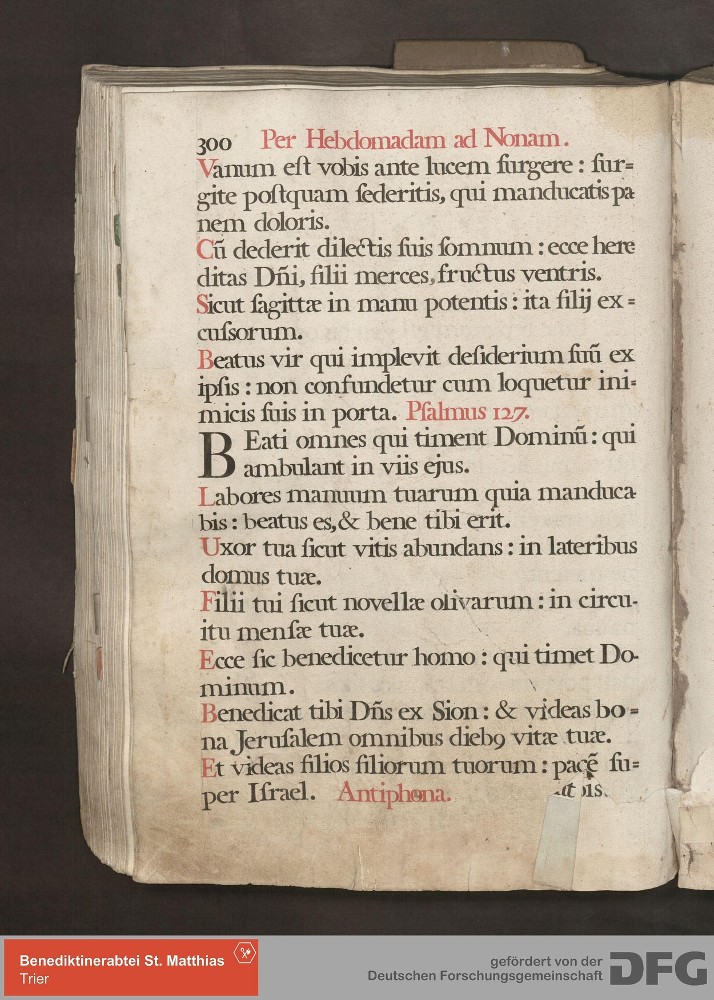 300 Per Hebdomadam ad Nonam.
Vanum eſt vobis ante lucem ſurgere : ſur=
gite poſtquam ſederitis, qui manducatis pa
nem doloris.
Cũ dederit dilectis ſuis ſomnum : ecce here
ditas Dñi, filii merces, fructus ventris.
Sicut ſagittæ in manu potentis : ita filij ex =
cuſsorum.
Beatus vir qui implevit deſiderium ſuũ ex
ipſis : non confundetur cum loquetur ini=
micis ſuis in porta. Pſalmus 127.
BEati omnes qui timent Dominũ : qui
ambulant in viis ejus.
Labores manuum tuarum quia manduca-
bis : beatus es, & bene tibi erit.
Uxor tua ſicut vitis abundans : in lateribus
domus tuæ.
Filii tui ſicut novellæ olivarum : in circu-
itu menſæ tuæ.
Ecce ſic benedicetur homo : qui timet Do-
minum.
Benedicat tibi Dñs ex Sion : & videas bo =
na Jeruſalem omnibus diebꝰ vitæ tuæ.
Et videas filios filiorum tuorum : pacẽ ſu=
per Iſrael. Antiphona.
Benediktinerabtei St. Matthias
Trier
gefördert von der
Deutschen Forschungsgemeinschaft DFG